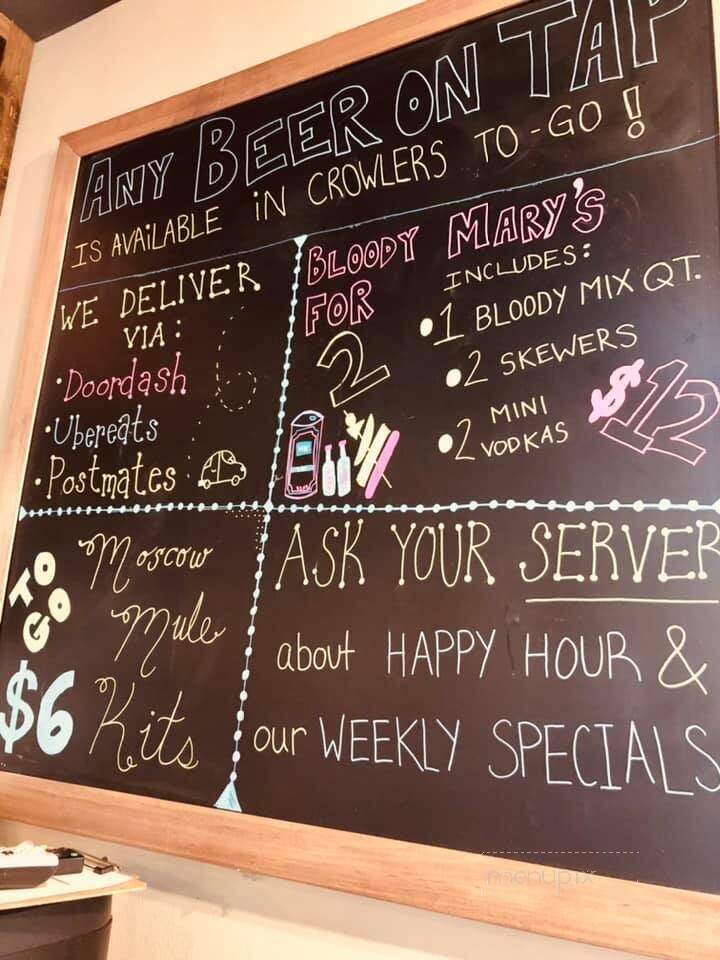 ANY BEER ON TAP
IS AVAILABLE IN CROWLERS TO-GO!
WE DELIVER
VIA:
• Doordash
• Ubereats
• Postmates
BLOODY MARY'S
FOR
2
INCLUDES:
• 1 BLOODY MIX QT.
• 2 SKEWERS
• 2 MINI
VODKAS
$12
TO
GO
$6
Moscow
Mule
Kits
ASK YOUR SERVER
about HAPPY HOUR &
our WEEKLY SPECIALS
menupix